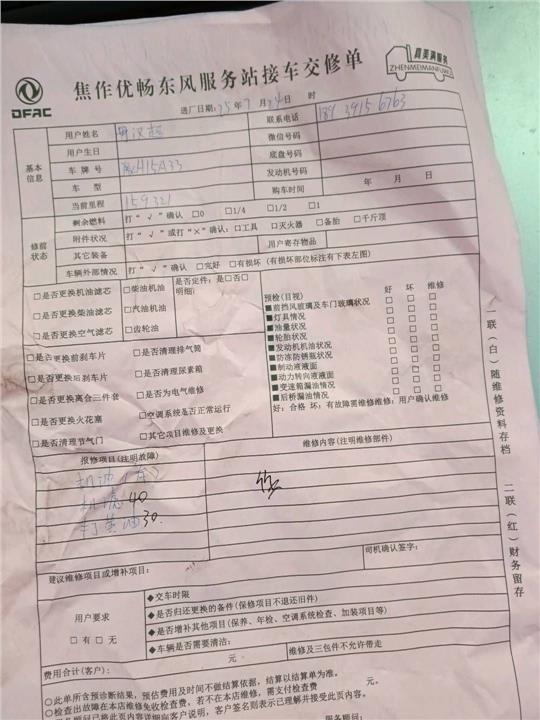 DFAC
焦作优畅东风服务站接车交修单
真美满服务
ZHENMEIMANFUWU
进厂日期：25年7月24日 时
基本信息
用户姓名 联系电话 189 3915 6763
用户生日 微信号码
车牌号 底盘号码
车 型 发动机号码
当前里程 159321 购车时间 年 月 日
修前状态
剩余燃料 打“√”确认 □0 □1/4 □1/2 □1
附件状况 打“√”或打“×”确认：□工具 □灭火器 □备胎 □千斤顶
其它装备 用户寄存物品
车辆外部情况 打“√”确认 □完好 □有损坏（有损坏部位标注有下表左图）
□是否更换机油滤芯 □柴油机油 是否定件：是□否□
明细：
□是否更换柴油滤芯 □汽油机油
□是否更换空气滤芯 □齿轮油
□是否更换前刹车片 □是否清理排气筒
□是否更换后刹车片 □是否清理尿素箱
□是否更换离合三件套 □是否为电气维修
□是否更换火花塞 □空调系统是否正常运行
□是否清理节气门 □其它项目维修及更换
预检(目视) 好 坏 维修
■前挡风玻璃及车门玻璃状况 □ □ □
■灯具情况 □ □ □
■油量状况 □ □ □
■轮胎状况 □ □ □
■发动机机油状况 □ □ □
■防冻防锈瓶状况 □ □ □
■制动液液面 □ □ □
■动力转向液液面 □ □ □
■变速箱漏油情况 □ □ □
■后桥漏油情况 □ □ □
好：合格 坏：有故障需维修维修：用户确认维修
报修项目(注明故障) 维修内容(注明维修部件)
机油
机滤 40
打黄油 30.
建议维修项目或增补项目： 司机确认签字：
用户要求
□有 □无
◆交车时限
◆是否归还更换的备件(保修项目不退还旧件)
◆是否增补其他项目(保养、年检、空调系统检查、加装项目等)
◆车辆是否需要清洁：
费用合计(客户)： 元 维修及三包件不允许带走
◇此单所含预诊断结果，预估费用及时间不做结算依据，结算以结算单为准。
◇检查出故障在本店维修免收检查费，若不在本店维修，需支付检查费 元。
已将此页内容详细向客户说明，客户签名则表示已理解并接受此页内容。
服务顾问：
一联（白）随维修资料存档
二联（红）财务留存